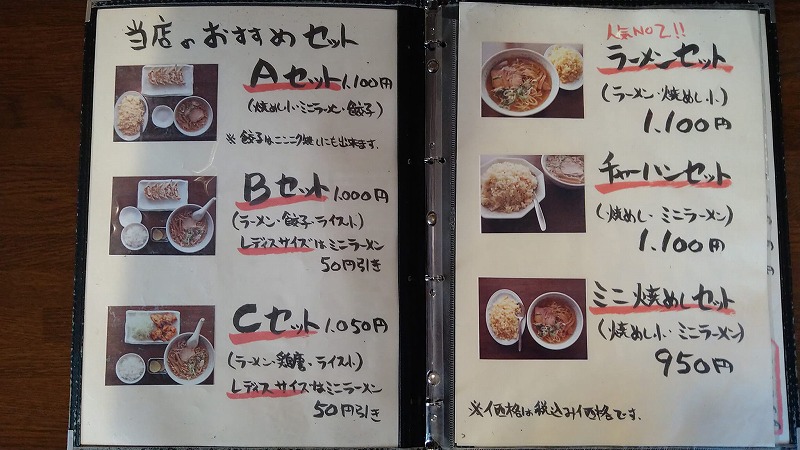 当店のおすすめセット
Aセット1,100円
(焼めし小・ミニラーメン・餃子)
※餃子はニンニク無しにも出来ます.
Bセット1,000円
(ラーメン・餃子・ライス小)
レディスサイズはミニラーメン
50円引き
Cセット1,050円
(ラーメン・鶏唐・ライス小)
レディスサイズはミニラーメン
50円引き
人気NO1!!
ラーメンセット
(ラーメン・焼めし小)
1,100円
チャーハンセット
(焼めし・ミニラーメン)
1,100円
ミニ焼めしセット
(焼めし小・ミニラーメン)
950円
※価格は税込み価格です.